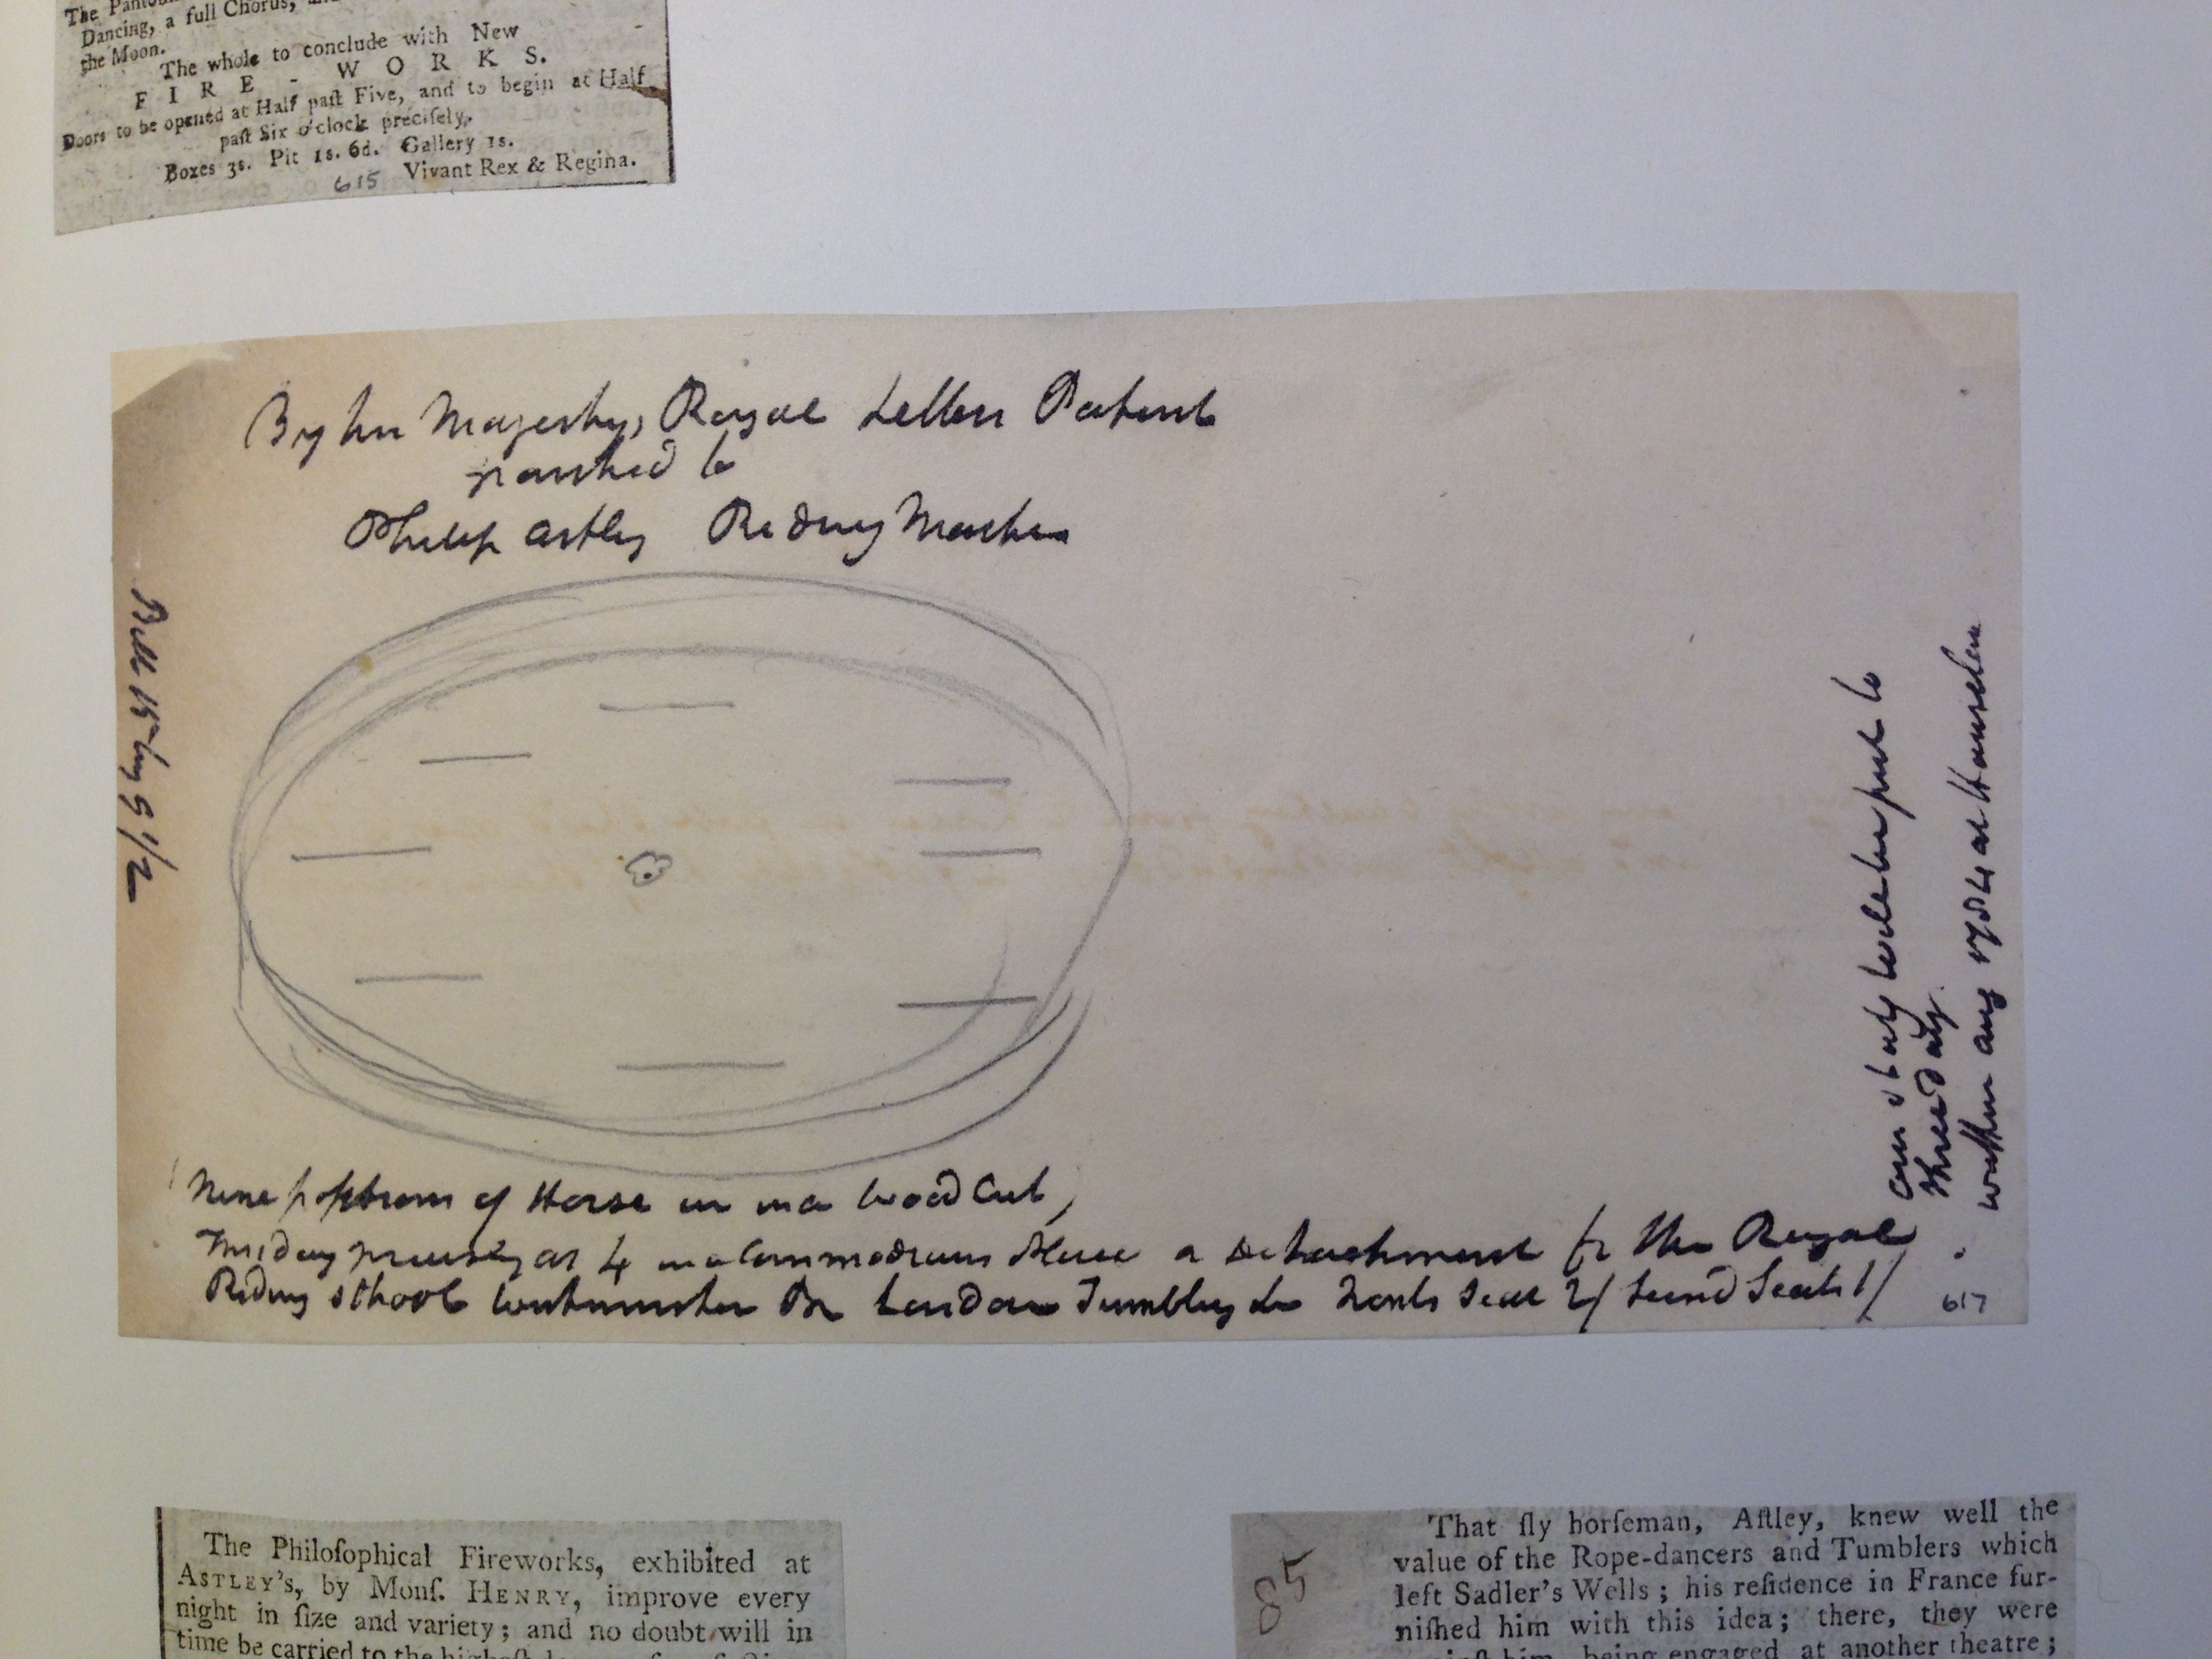 The
Dancing, a full Chorus,
the Moon.
The whole to conclude with New
FIRE-WORKS.
Doors to be opened at Half paſt Five, and to begin at Half
paſt Six o'clock preciſely,
Boxes 3s. Pit 1s. 6d. Gallery 1s.
615 Vivant Rex & Regina.
By his Majestys Royal Letters Patent
granted to
Philip Astley Riding Master
Bill 15 by 9 1/2
Nine positions of Horse in a Wood Cut,
Friday at 4 in a Commodious Place a Detachment fr the Royal
Riding School Westminster Br London Tumbling &c Fronts Seat 2/ Second Seats 1/
put to
three days.
within aug 1784 at Hounslow
617
The Philoſophical Fireworks, exhibited at
ASTLEY's, by Monſ. HENRY, improve every
night in ſize and variety; and no doubt will in
time be carried to the
85
That ſly horſeman, Aſtley, knew well the
value of the Rope-dancers and Tumblers which
left Sadler's Wells; his reſidence in France fur-
niſhed him with this idea; there, they were
him, being engaged at another theatre;